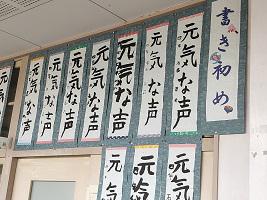 書き初め
元気な声
元気な声
元気な声
元気な声
元気な声
元気な声
元気な声
元気な声
元気
元気
元気